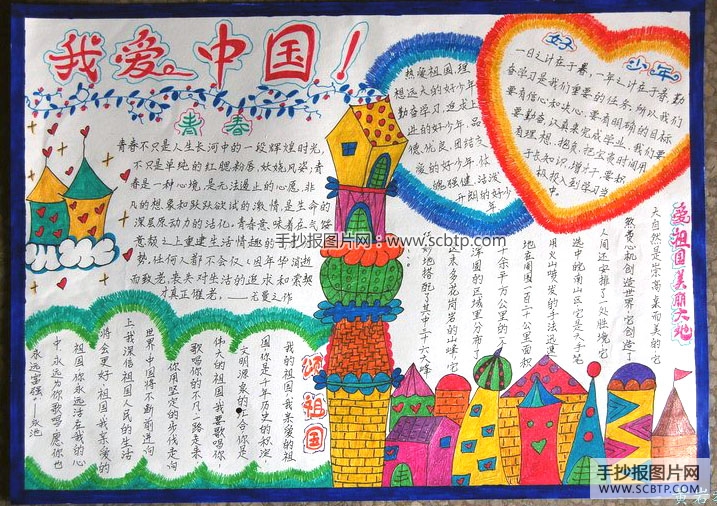 我爱中国！
青春
青春不只是人生长河中的一段辉煌时光，
不只是单纯的红腮粉唇，妖娆风姿；青
春是一种心境，是无法遏止的心愿，非
凡的想象和跃跃欲试的激情，是生命的
深层原动力的活化。青春意味着在气馁
意颓之上重建生活情趣的
势，任何人都不会仅
而致老，丧失对生活的追求和
才真正催老。
热爱祖国，理
想远大的好少年
勤奋学习，追求上
进的好少年，品
德优良，团结友
爱的好少年，体
魄强健，活泼
开朗的好少年
好少年
一日之计在于晨，一年之计在于春，勤
奋学习是我们重要的任务，所以我们
要有信心和决心，要有明确的目标
要勤奋，认真来完成学业，我们要
有理想，抱负，把宝贵时间用
于长知识，增才干，要积
极投入到学习当
中。
手抄报图片网：www.scbtp.com
爱祖国美丽大地
大自然是崇高卓而美的，它
煞费心机创造世界，它创造了
人间还安排了一处胜境，它
选中皖南山区，它是大手笔
用火山喷发的手法迅速
地在周围一百二十公里面积
千余平方公里的一个
浑圆的区域里分布了
这末多花岗岩的山峰，它
巧妙地搭配了其中三十六大峰
颂祖国
我的祖国，我亲爱的祖
国，你是千年历史的积淀，
伟大的祖国，我要歌唱你，
歌唱你的不凡，一路走来
你用坚定的步伐走向
世界，中国将不断前进向
上，我深信祖国人民的生活
将会更好，祖国，我亲爱的
祖国，你永远活在我的心
中，永远为你歌唱，愿你也
永远富强！
手抄报图片网
WWW.SCBTP.COM